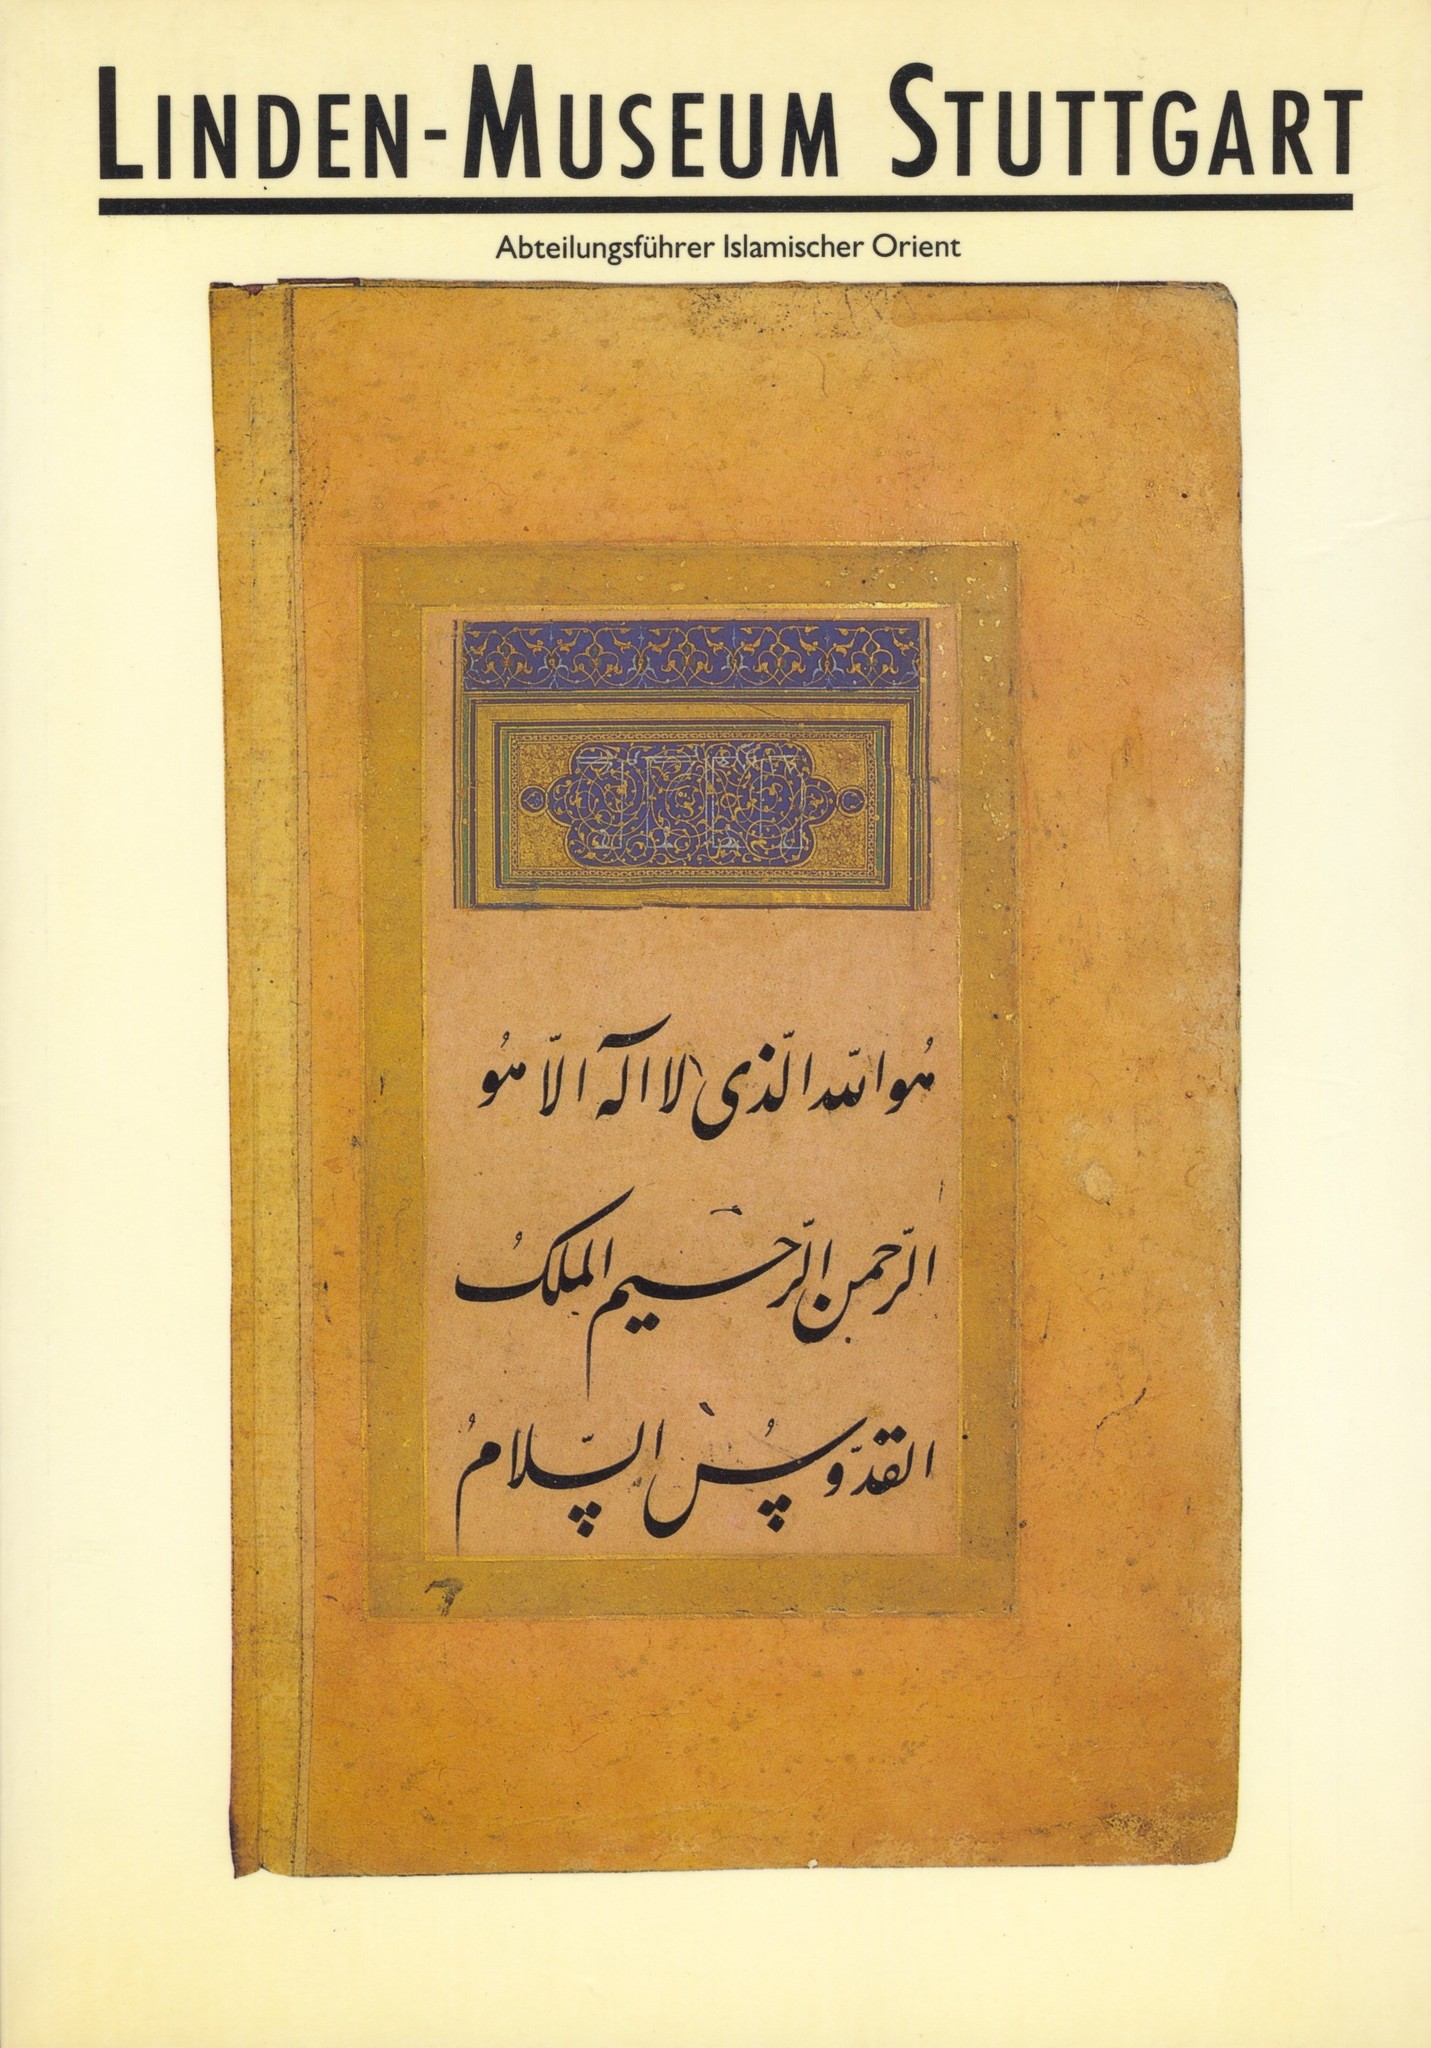 LINDEN-MUSEUM STUTTGART
Abteilungsführer Islamischer Orient
هُو الله الّذى لا اله الّا هُو
الرّحمن الرّحيم الملكُ
القدّوسُ السّلامُ